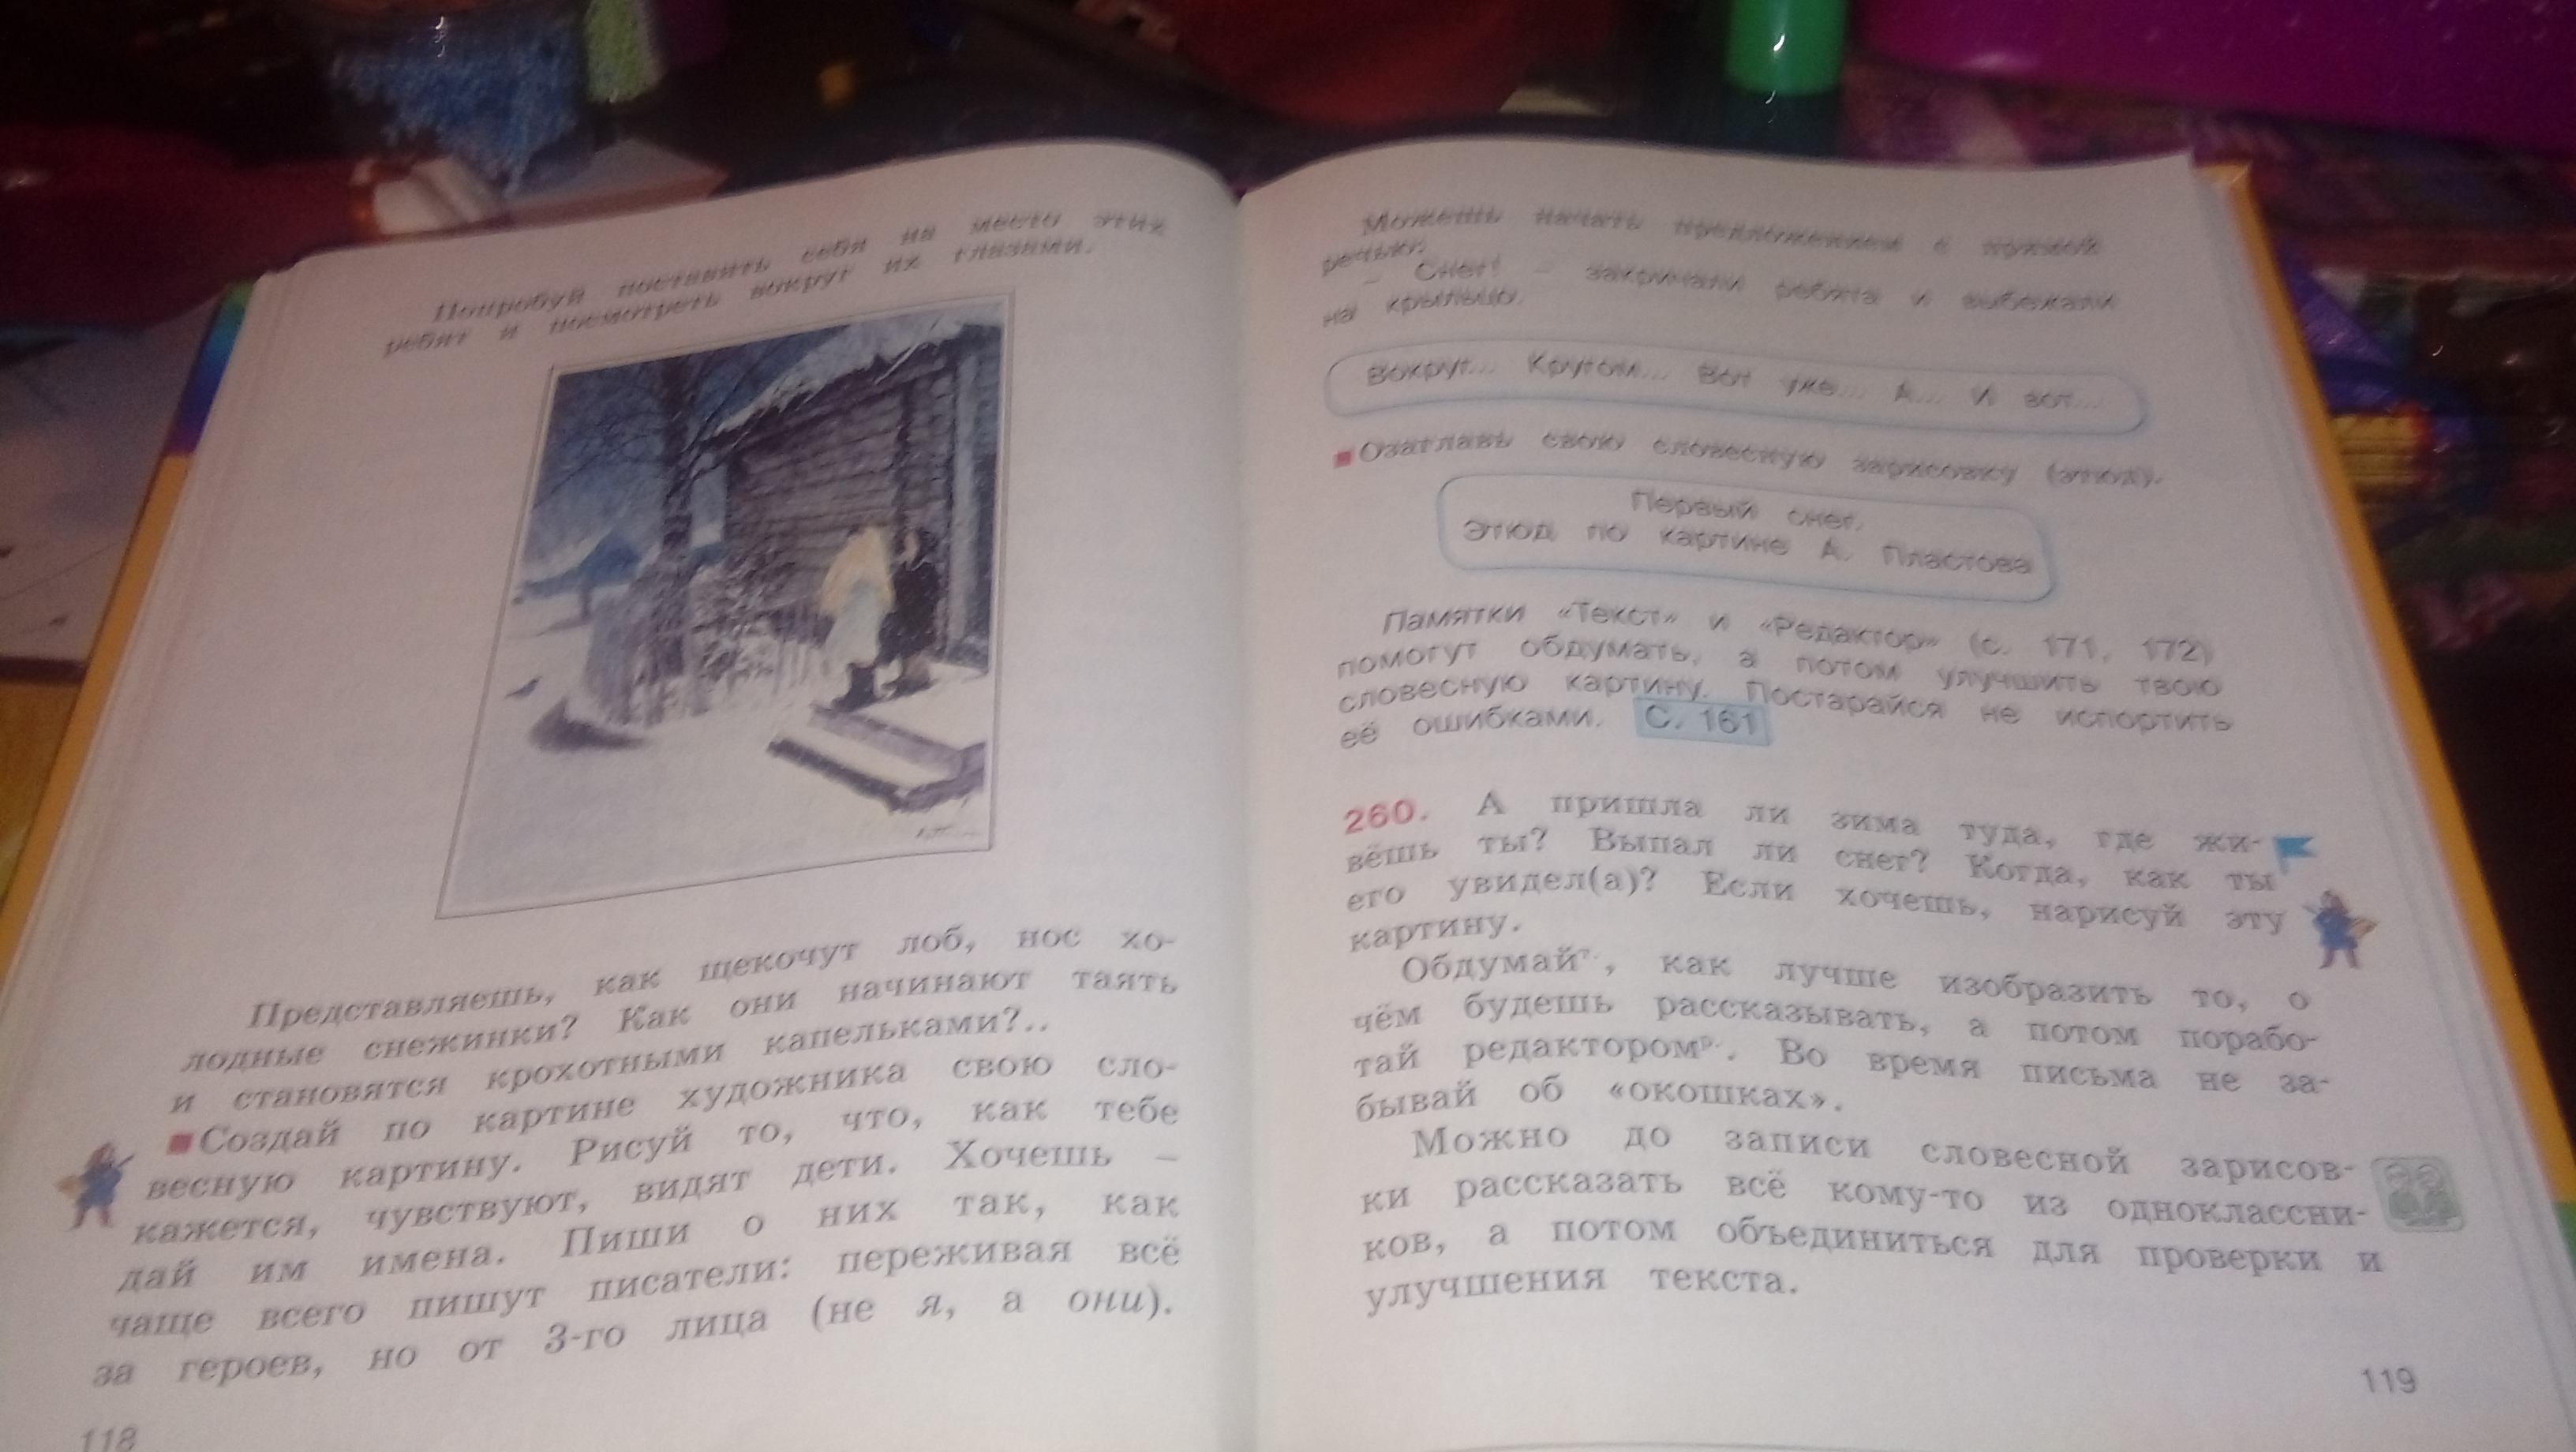 Попробуй поставить себя на место этих
ребят и посмотреть вокруг их глазами.
Представляешь, как щекочут лоб, нос хо-
лодные снежинки? Как они начинают таять
и становятся крохотными капельками?..
Создай по картине художника свою сло-
весную картину. Рисуй то, что, как тебе
кажется, чувствуют, видят дети. Хочешь –
дай им имена. Пиши о них так, как
чаще всего пишут писатели: переживая всё
за героев, но от 3-го лица (не я, а они).
118
Можешь начать предложением с прямой
речью:
– Снег! – закричали ребята и выбежали
на крыльцо.
Вокруг... Кругом... Вот уже... А... И вот...
Озаглавь свою словесную зарисовку (этюд).
Первый снег.
Этюд по картине А. Пластова
Памятки «Текст» и «Редактор» (с. 171, 172)
помогут обдумать, а потом улучшить твою
словесную картину. Постарайся не испортить
её ошибками. С. 161
260. А пришла ли зима туда, где жи-
вёшь ты? Выпал ли снег? Когда, как ты
его увидел(а)? Если хочешь, нарисуй эту
картину.
Обдумайт., как лучше изобразить то, о
чём будешь рассказывать, а потом порабо-
тай редакторомр.. Во время письма не за-
бывай об «окошках».
Можно до записи словесной зарисов-
ки рассказать всё кому-то из одноклассни-
ков, а потом объединиться для проверки и
улучшения текста.
119